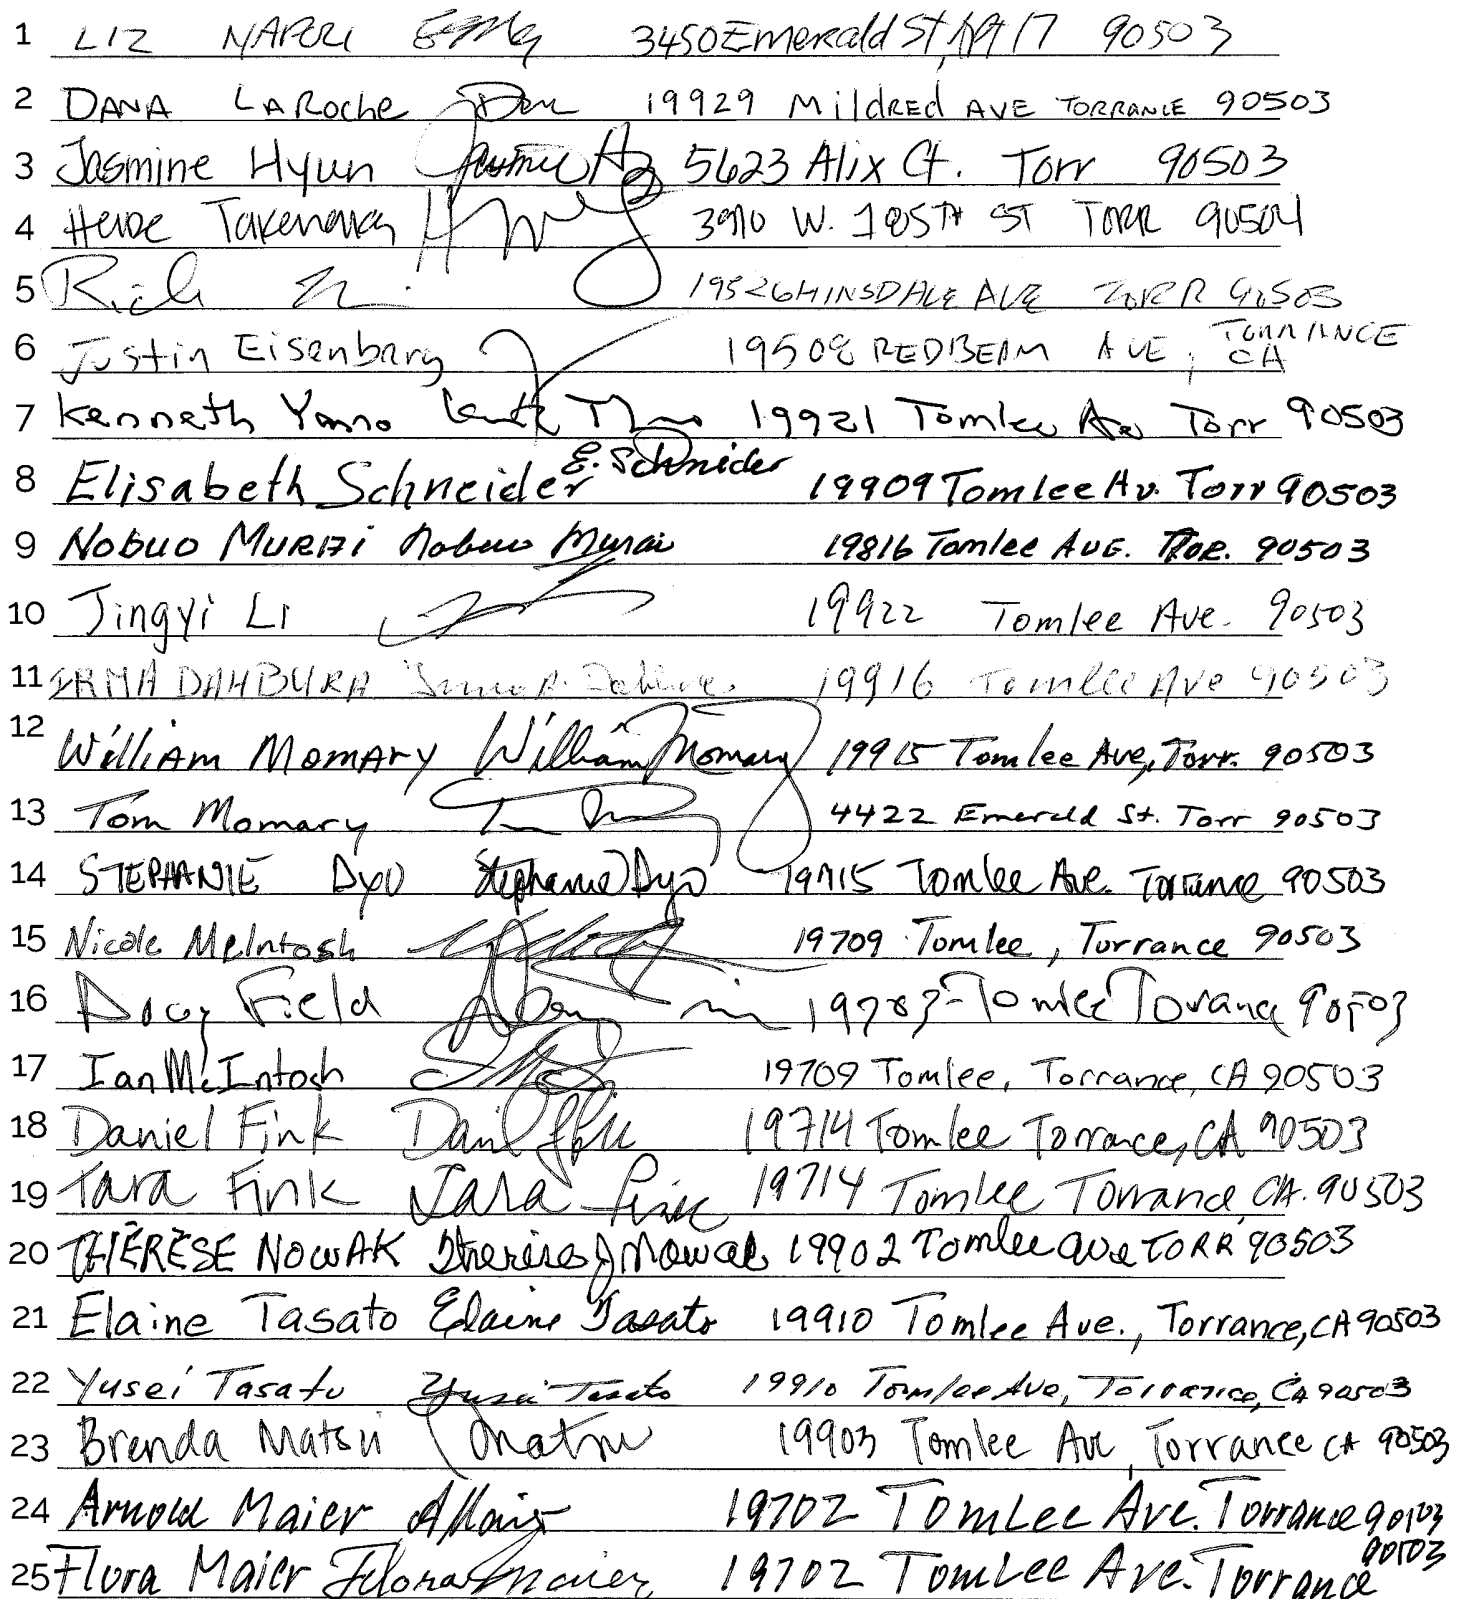 1 LIZ NAPOLI 3450 Emerald St, Apt 17 90503
2 DANA LAROChe 19929 MildRED AVE TORRANCE 90503
3 Jasmine Hyun 5623 Alix Ct. Torr 90503
4 TAKENAKA W. 185TH ST TORR 90504
5 Rick 19526 HINSDALE AVE TORR 90503
6 Justin Eisenberg 19508 REDBEAM AVE, TORRANCE CA
7 Kenneth Yano 19921 Tomlee Ave Torr 90503
8 Elisabeth Schneider E. Schneider 19909 Tomlee Av. Torr 90503
9 NOBUO MURAI Nobuo Murai 19816 Tomlee AVE. TOR. 90503
10 Jingyi LI 19922 Tomlee Ave. 90503
11 IRMA DAHBURA 19916 Tomlee Ave 90503
12 William MOMARY William Momary 19915 Tomlee Ave, Torr. 90503
13 Tom Momary 4422 Emerald St. Torr 90503
14 STEPHANIE DYO Stephanie Dyo 19715 Tomlee Ave. Torrance 90503
15 Nicole McIntosh 19709 Tomlee, Torrance 90503
16 Field Tomlee Torrance 90503
17 Ian McIntosh 19709 Tomlee, Torrance, CA 90503
18 Daniel Fink 19714 Tomlee Torrance, CA 90503
19 Tara Fink Tara Fink 19714 Tomlee Torrance, CA. 90503
20 THÉRÈSE NOWAK Therese J Nowak 19902 Tomlee ave TORR 90503
21 Elaine Tasato Elaine Tasato 19910 Tomlee Ave., Torrance, CA 90503
22 Yusei Tasato Yusei Tasato 19910 Tomlee Ave, Torrance, CA 90503
23 Brenda Matsu Matsu 19903 Tomlee Ave, Torrance CA 90503
24 Arnold Maier AMaier 19702 TomLee Ave. Torrance 90503
25 Flora Maier Flora Maier 19702 TomLee Ave. Torrance 90503